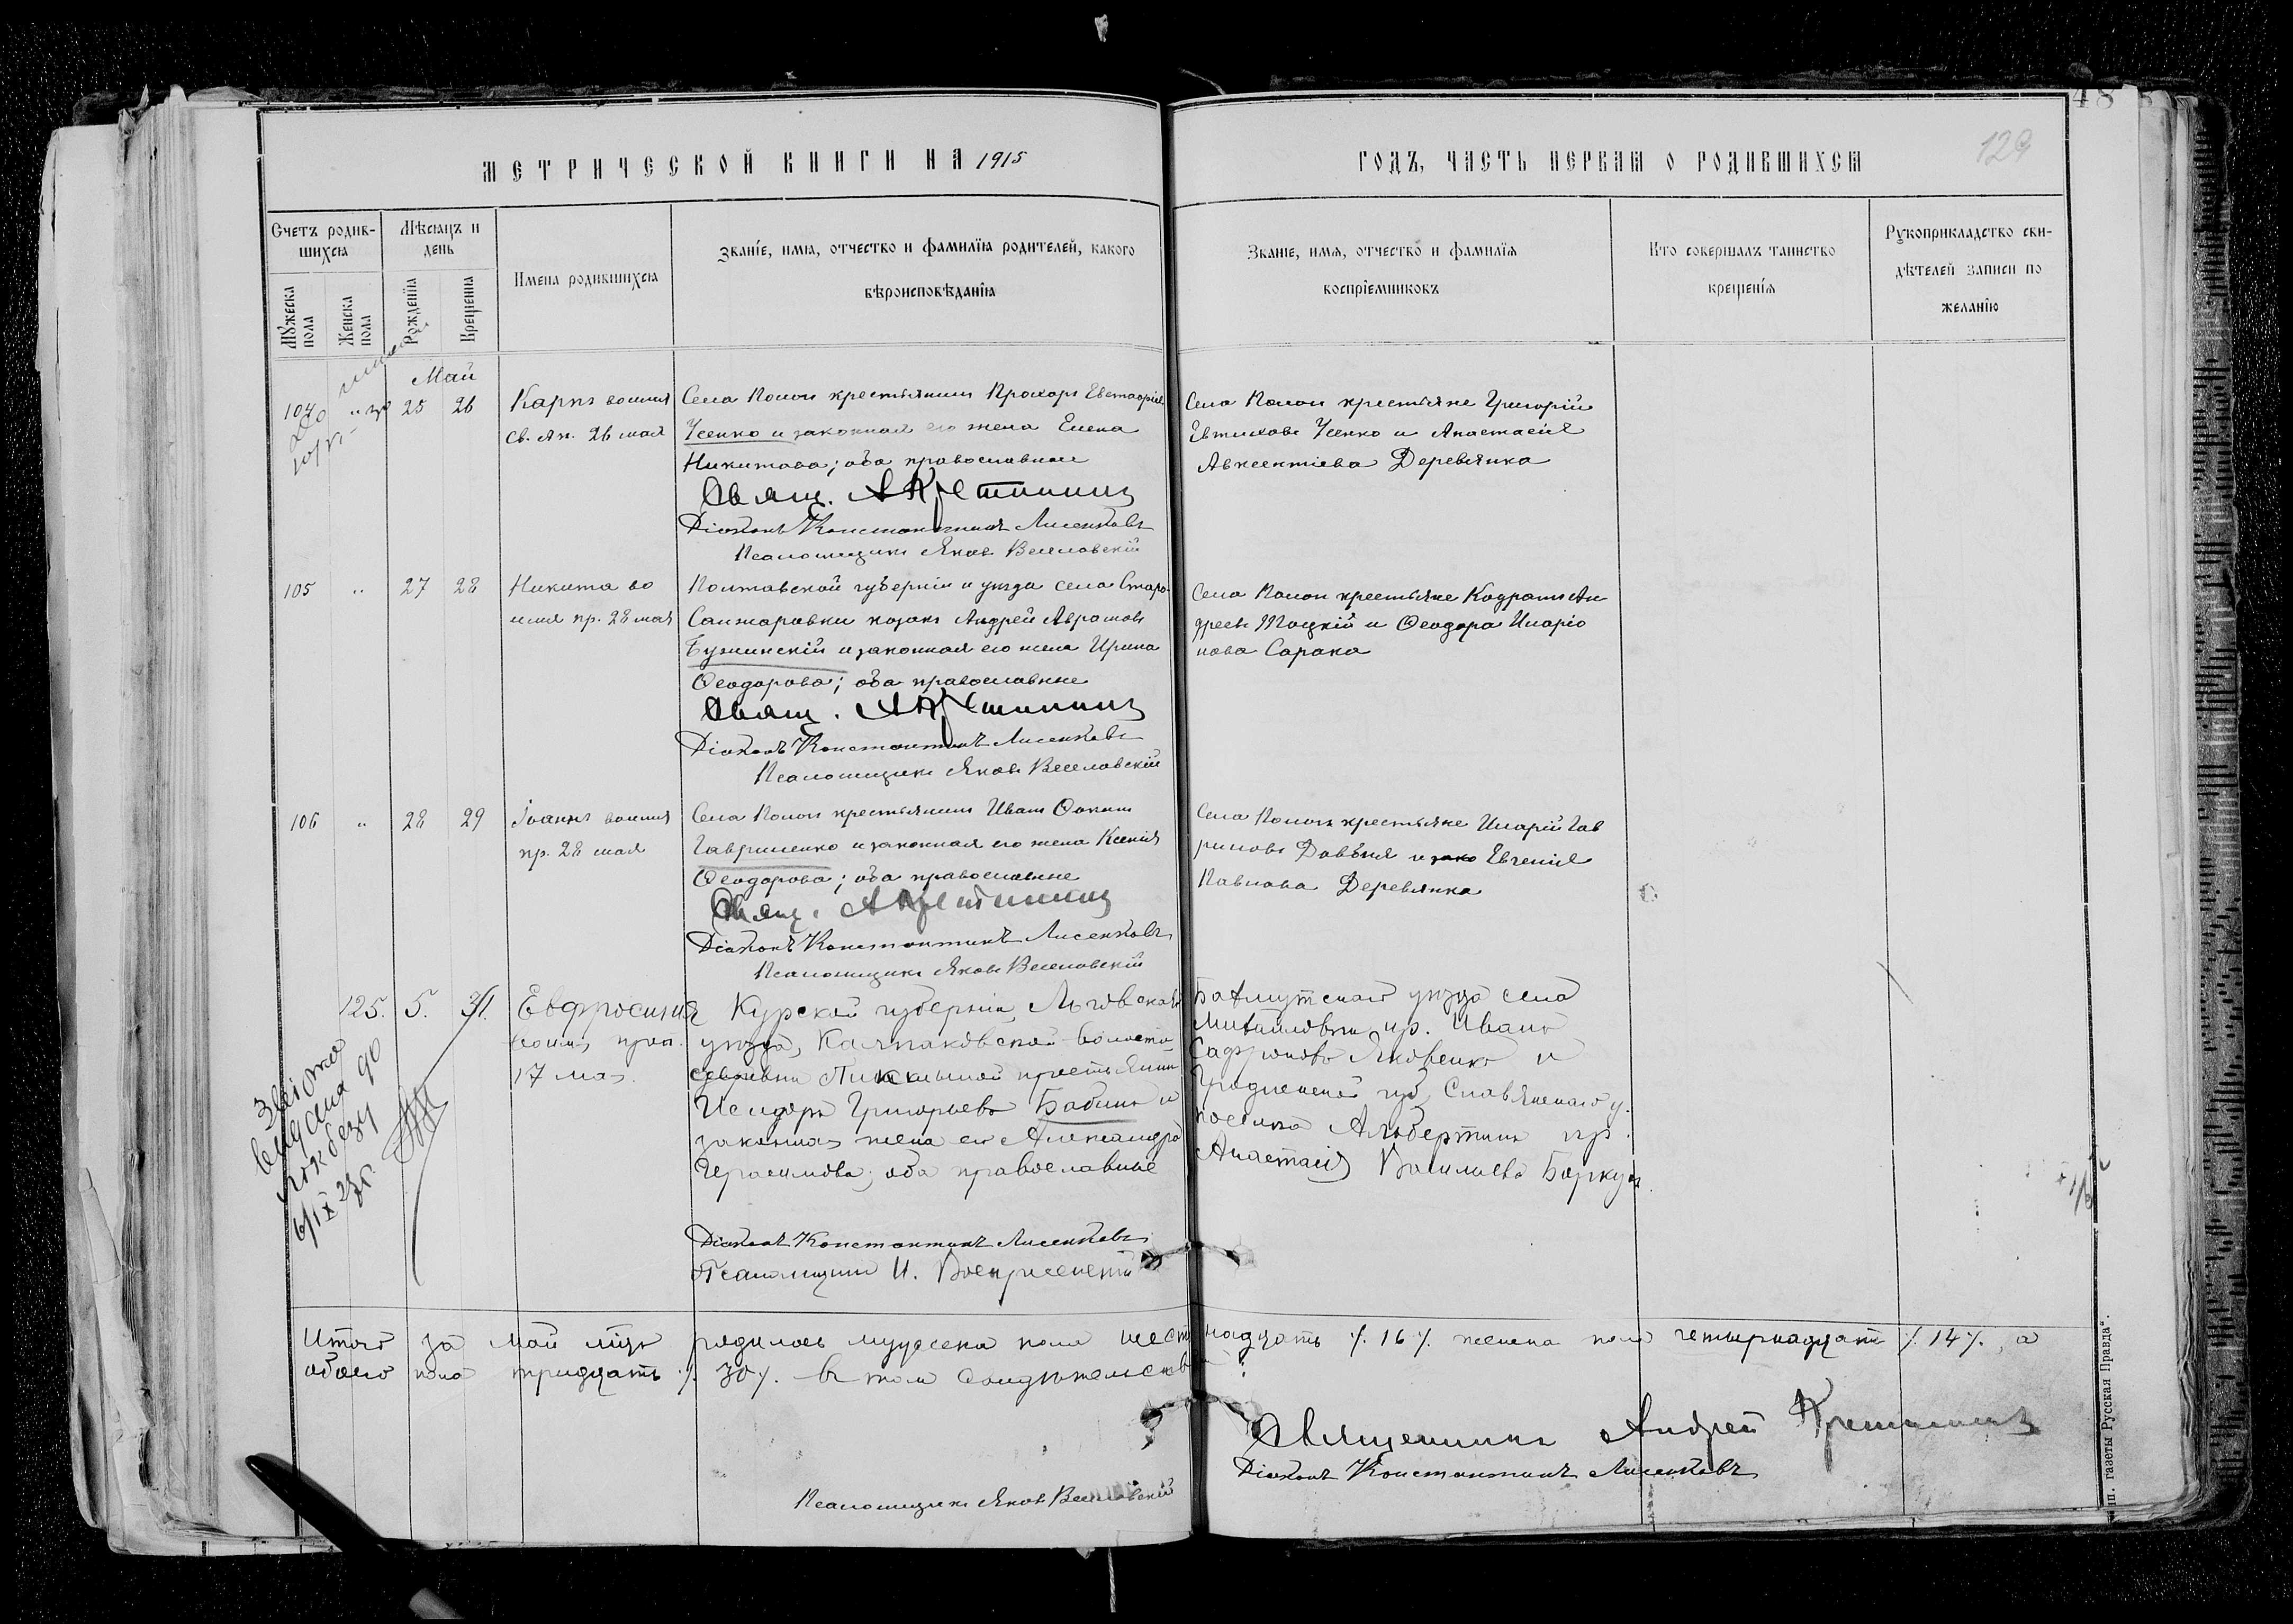 МЕТРИЧЕСКОЙ КНИГИ НА 1915
ГОДЪ, ЧАСТЬ ПЕРВАЯ О РОДИВШИХСЯ
129
48
Счетъ родив-
шихся
Мужеска пола
Женска пола
Мѣсяцъ и
день
Рожденія
Крещенія
Имена родившихся
Званіе, имя, отчество и фамилія родителей, какого
вѣроисповѣданія
Званіе, имя, отчество и фамилія
воспріемниковъ
Кто совершалъ таинство
крещенія
Рукоприкладство сви-
дѣтелей записи по
желанію
Май
104 25 26
Карпъ во имя
св. Ап. 26 мая
Села Попои крестьянинъ Прохоръ
Усенко и законная его жена Елена
Никитова; оба православные
Свящ. А Кретининъ
Діаконъ Константинъ Лисенковъ
Псаломщикъ Яковъ Веселовскій
Села Попои крестьяне Григорій
Евтиховъ Усенко и Анастасія
Авксентіева Деревянка
105 " 27 28
Никита во
имя пр. 28 мая
Полтавской губерніи и уѣзда села Старо-
Санжаровки козакъ Андрей Аврамовъ
Бужинскій и законная его жена Ирина
Ѳеодорова; оба православные
Свящ. А Кретининъ
Діаконъ Константинъ Лисенковъ
Псаломщикъ Яковъ Веселовскій
Села Попои крестьяне Кодратъ Ан-
дреевъ Тоцкій и Ѳеодора Иларіо
нова Сорока
106 " 28 29
Іоаннъ во имя
пр. 28 мая
Села Попои крестьянинъ Иванъ Ѳокинъ
Гавриленко и законная его жена Ксенія
Ѳеодорова; оба православные
Свящ. А Кретининъ
Діаконъ Константинъ Лисенковъ
Псаломщикъ Яковъ Веселовскій
Села Попои крестьяне Иларій Гав
риловъ Довбня и Евгенія
Павлова Деревянка
125. 5. 31.
Евфросинія
во имя преп.
17 мая.
Курской губерніи, Льговскаго
уѣзда, Колпаковской волости
деревни крестьянинъ
Исидоръ Григорьевъ Бабинъ и
законная жена его Александра
Герасимова; оба православные
Діаконъ Константинъ Лисенковъ
Псаломщикъ И. Воскресенскій
Бахмутскаго уѣзда села
Михайловки, кр. Иванъ
Сафроновъ Яковенко и
Гродненской губ. Слонимскаго у.
поселка Альбертинъ кр.
Анастасія Васильева Боркун.
6/IX 25
Итого за Май мѣсяцъ родилось мужеска пола шестнадцать /. 16 /. женска пола четырнадцать /. 14 /., а
обоего пола тридцать /. 30 /. въ томъ свидѣтельствуемъ:
Священникъ Андрей Кретининъ
Діаконъ Константинъ Лисенковъ
Псаломщикъ Яковъ Веселовскій
Тип. газеты Русская Правда".